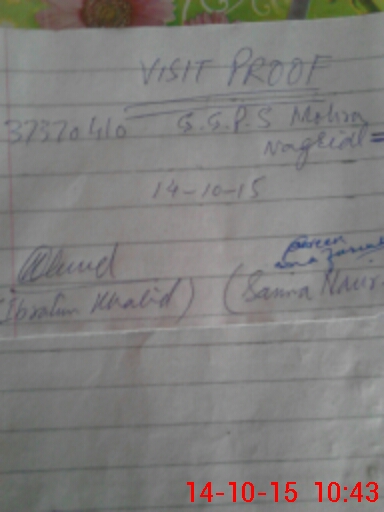 VISIT PROOF
37370410 G.G.P.S Mohra
Nagrial
14-10-15
(Ibrahim Khalid) (Sanna
14-10-15 10:43